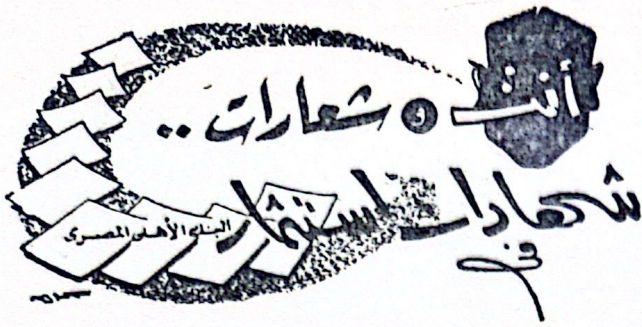 أنت و شعارات ..
شهادات استثمار
البنك الأهلى المصرى
فى